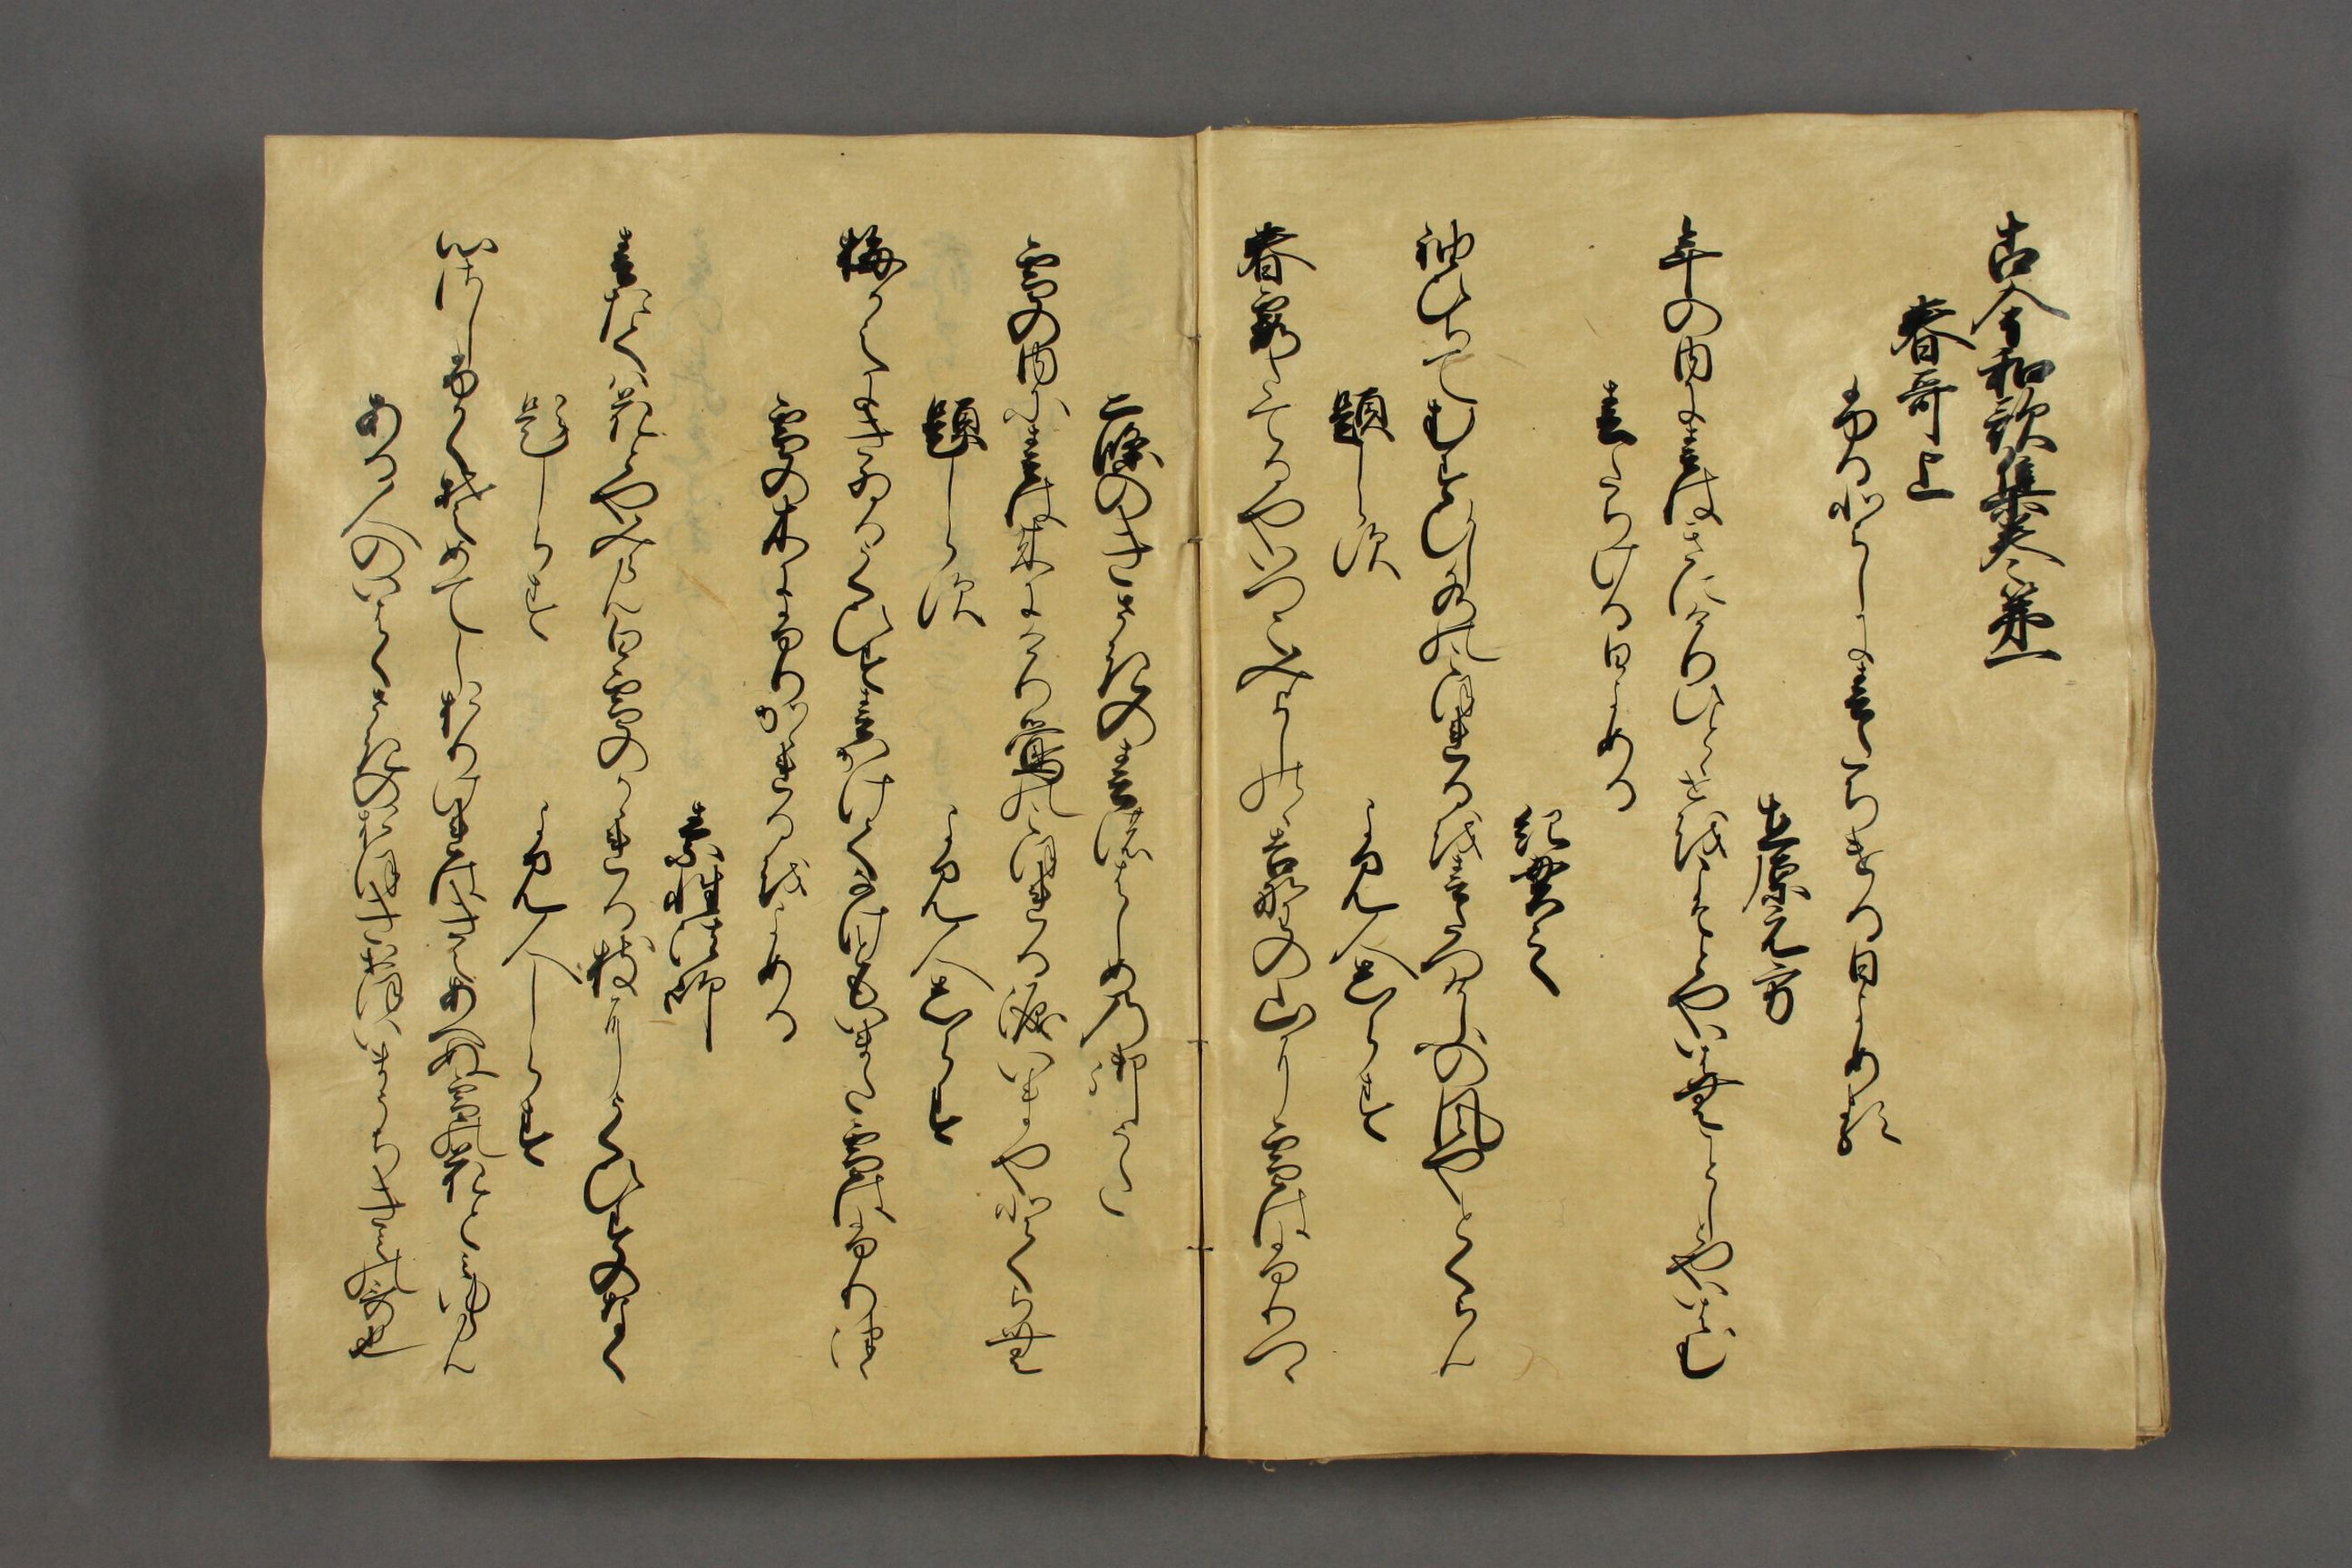 古今和歌集巻第一
春哥上
ふるとしに春たちける日よめる
在原元方
年の内に春はきにけりひとゝせをこそとやいはむことしとやいはむ
春たちける日よめる
紀貫之
袖ひちてむすひし水のこほれるを春たつけふの風やとくらん
題しらす
よみ人しらす
春霞たてるやいつこみよしのゝ吉野の山に雪はふりつゝ
二條のきさきの春のはしめの御うた
雪の内に春は来にけり鶯のこほれる涙いまやとくらむ
題しらす
よみ人しらす
梅かえにきゐるうくひす春かけてなけともいまた雪はふりつゝ
雪の木にふりかゝれるをよめる
素性法師
春たては花とやみらん白雪のかゝれる枝にうくひすのなく
題しらす
よみ人しらす
心さしふかくそめてしおりけれはきえあへぬ雪の花とみゆらん
ある人のいはくさきのおほきおほいまうちきみの哥也